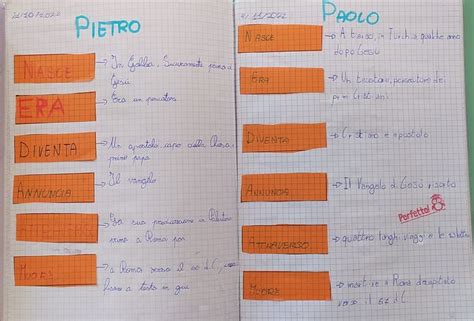 21/10/2022
PIETRO
NASCE
In Galilea, Sicuramente prima di
Gesù
ERA
Era un pescatore
DIVENTA
Un apostolo capo della Chiesa
primo papa
ANNUNCIA
Il vangelo
ATTRAVERSO
La sua predicazione in Palestina
a Roma poi
MUORE
a Roma verso il 60 d.C,
a testa in giù
11/2022
PAOLO
NASCE
A Tarso, in Turchia qualche anno
dopo Gesù
ERA
Un persecutore dei
primi Cristiani
DIVENTA
Cristiano e apostolo
ANNUNCIA
Il Vangelo di Gesù risorto
Perfetto!
ATTRAVERSO
quattro lunghi viaggi e le lettere
MUORE
martire a Roma decapitato
verso il 67 d.C